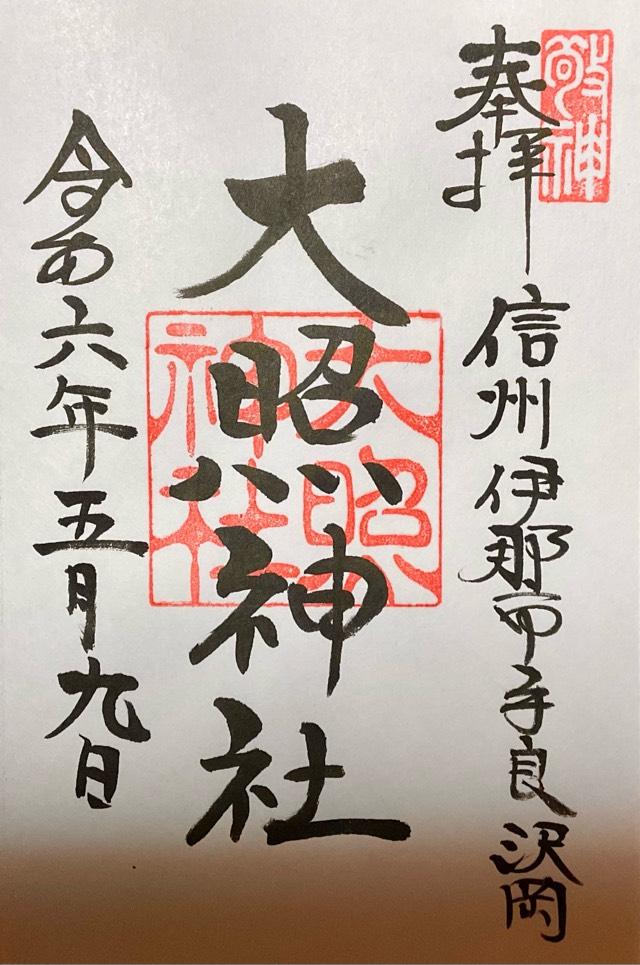 敬神
奉拝
信州伊那市手良沢岡
大照神社
大照神社
令和六年五月九日